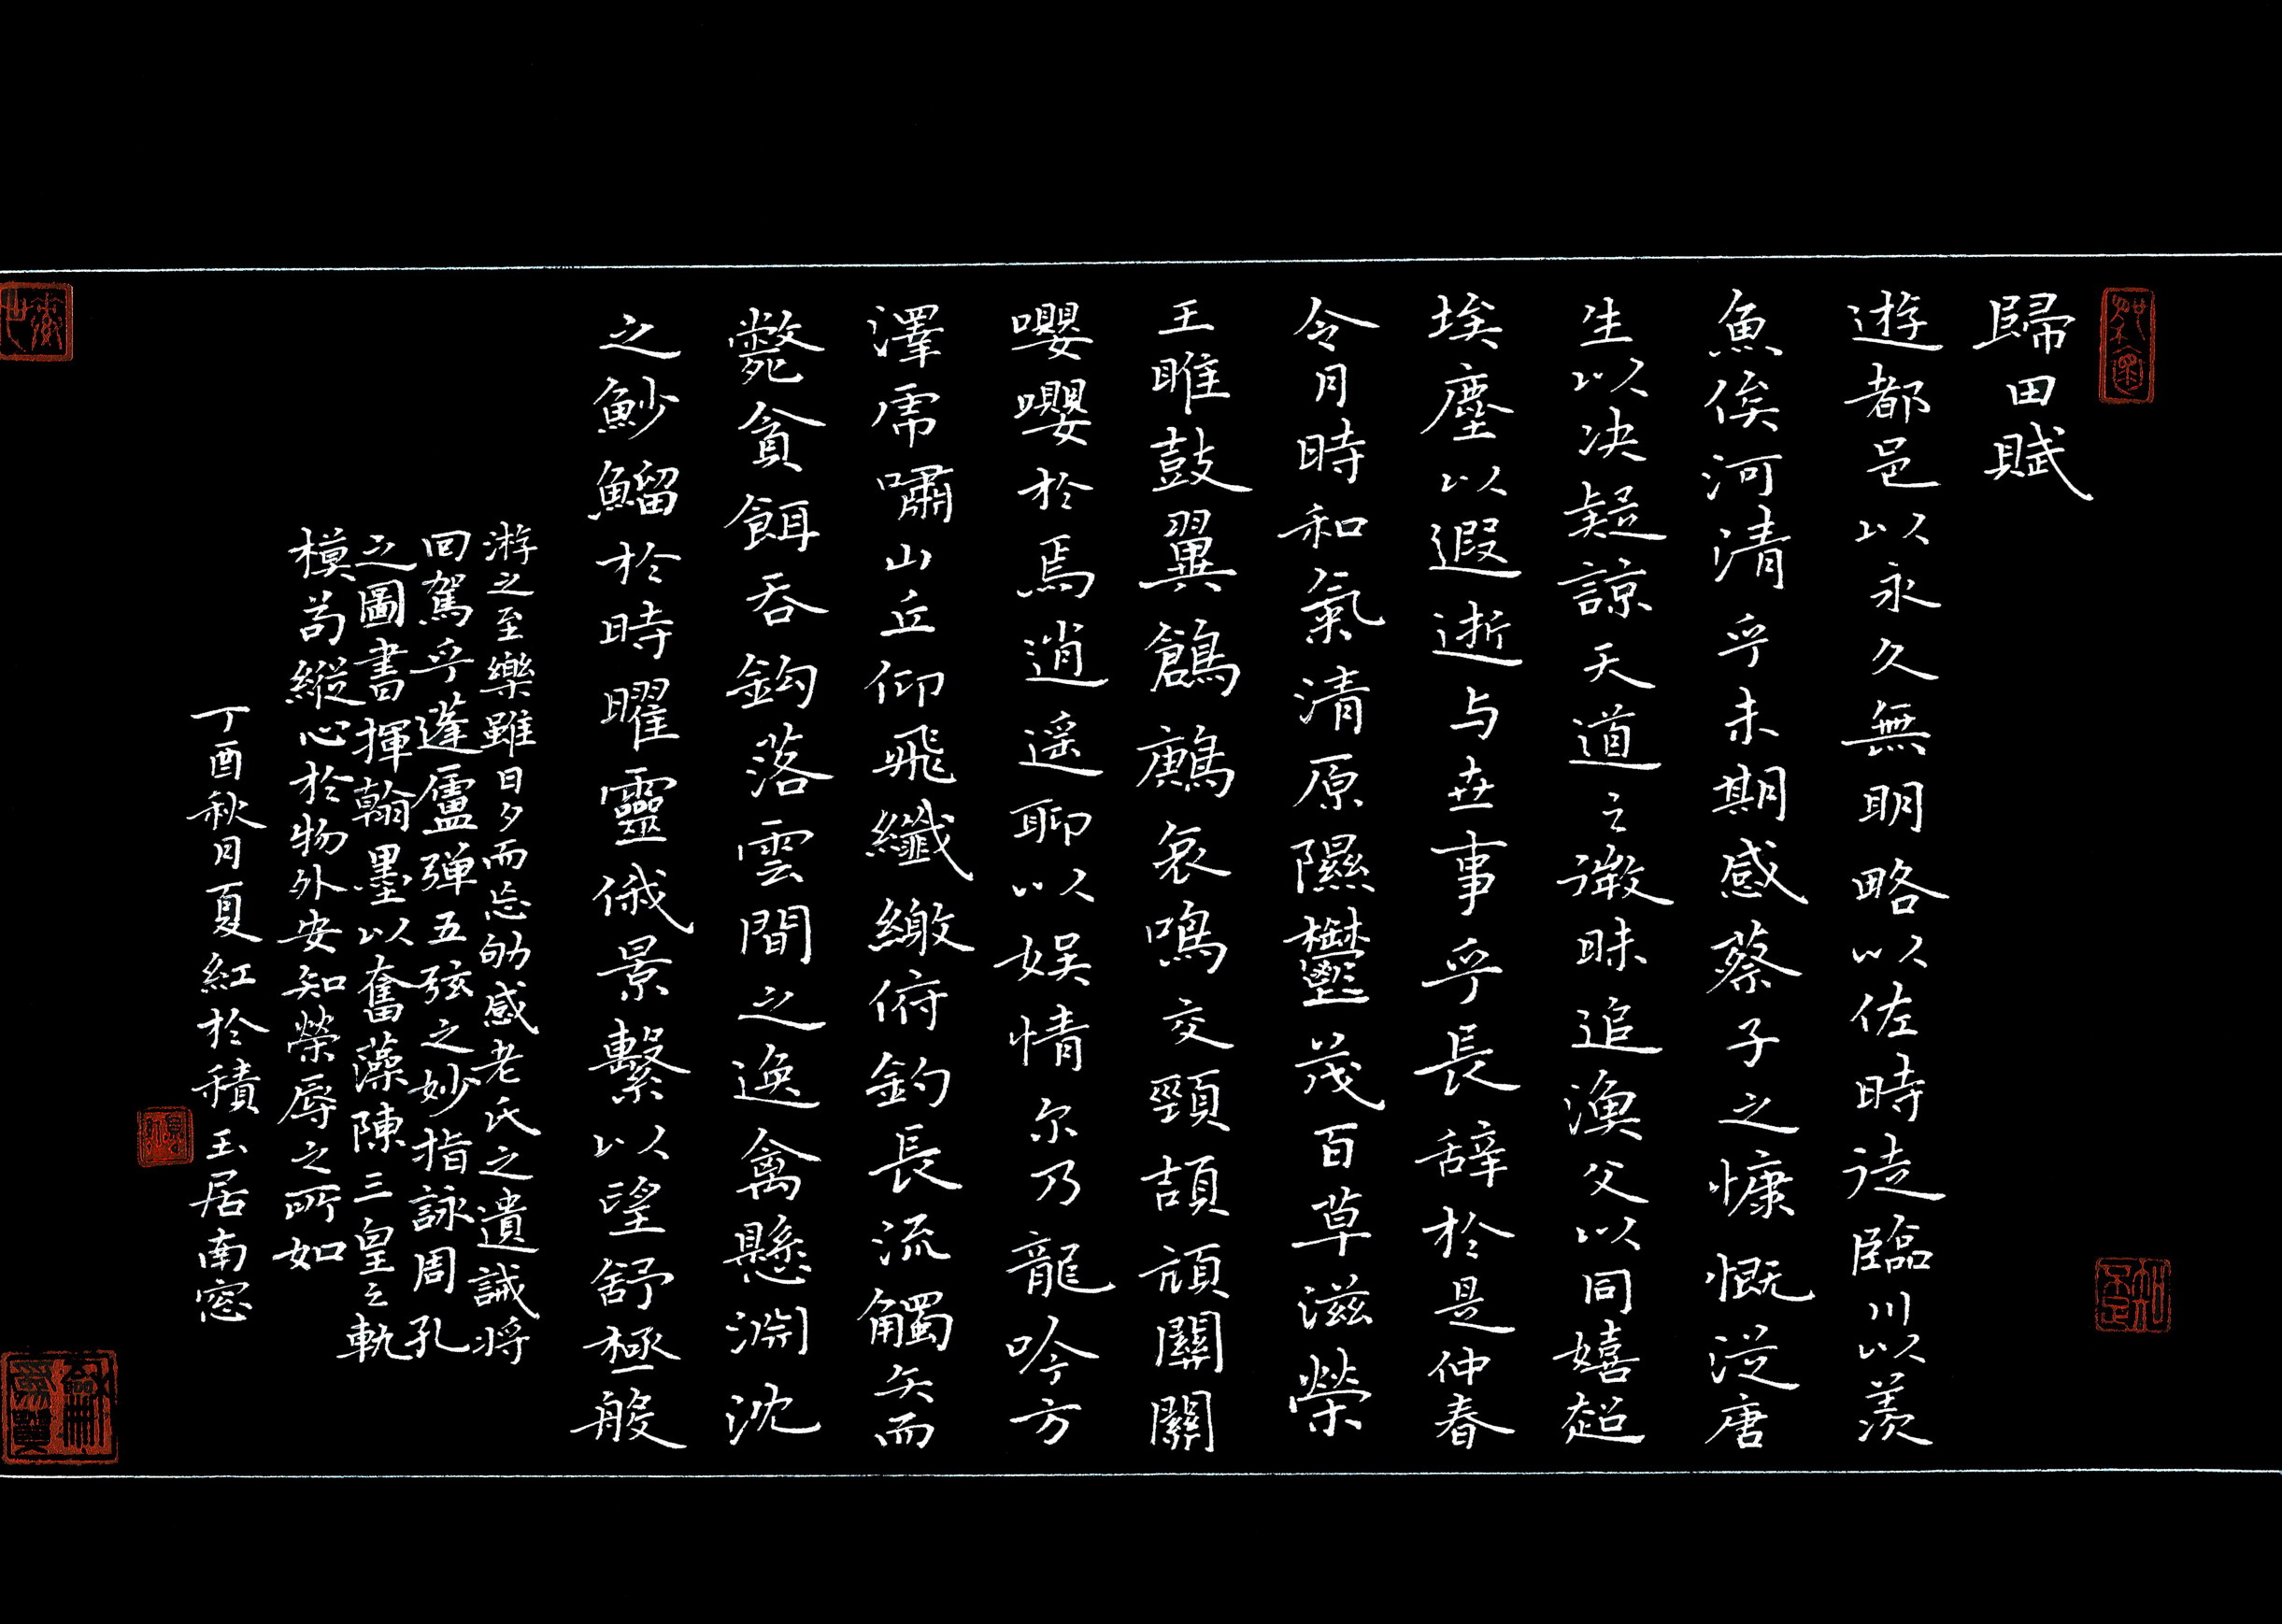 歸田賦
遊都邑以永久無明略以佐時徒臨川以羡
魚俟河清乎未期感蔡子之慷慨從唐
生以决疑諒天道之微昧追漁父以同嬉超
埃塵以遐逝与世事乎長辞於是仲春
令月時和氣清原隰鬱茂百草滋榮
王雎鼓翼鶬鶊哀鳴交頸頡頏關關
嚶嚶於焉逍遥聊以娱情尔乃龍吟方
澤虎嘯山丘仰飛纖繳俯釣長流觸矢而
斃貪餌吞鈎落雲間之逸禽懸淵沈
之魦鰡於時曜靈俄景繫以望舒極般
游之至樂雖日夕而忘劬感老氏之遺誡将
回駕乎蓬廬弹五弦之妙指詠周孔
之圖書揮翰墨以奮藻陳三皇之軌
模苟縱心於物外安知榮辱之所如
丁酉秋月夏紅於積玉居南窓
知足